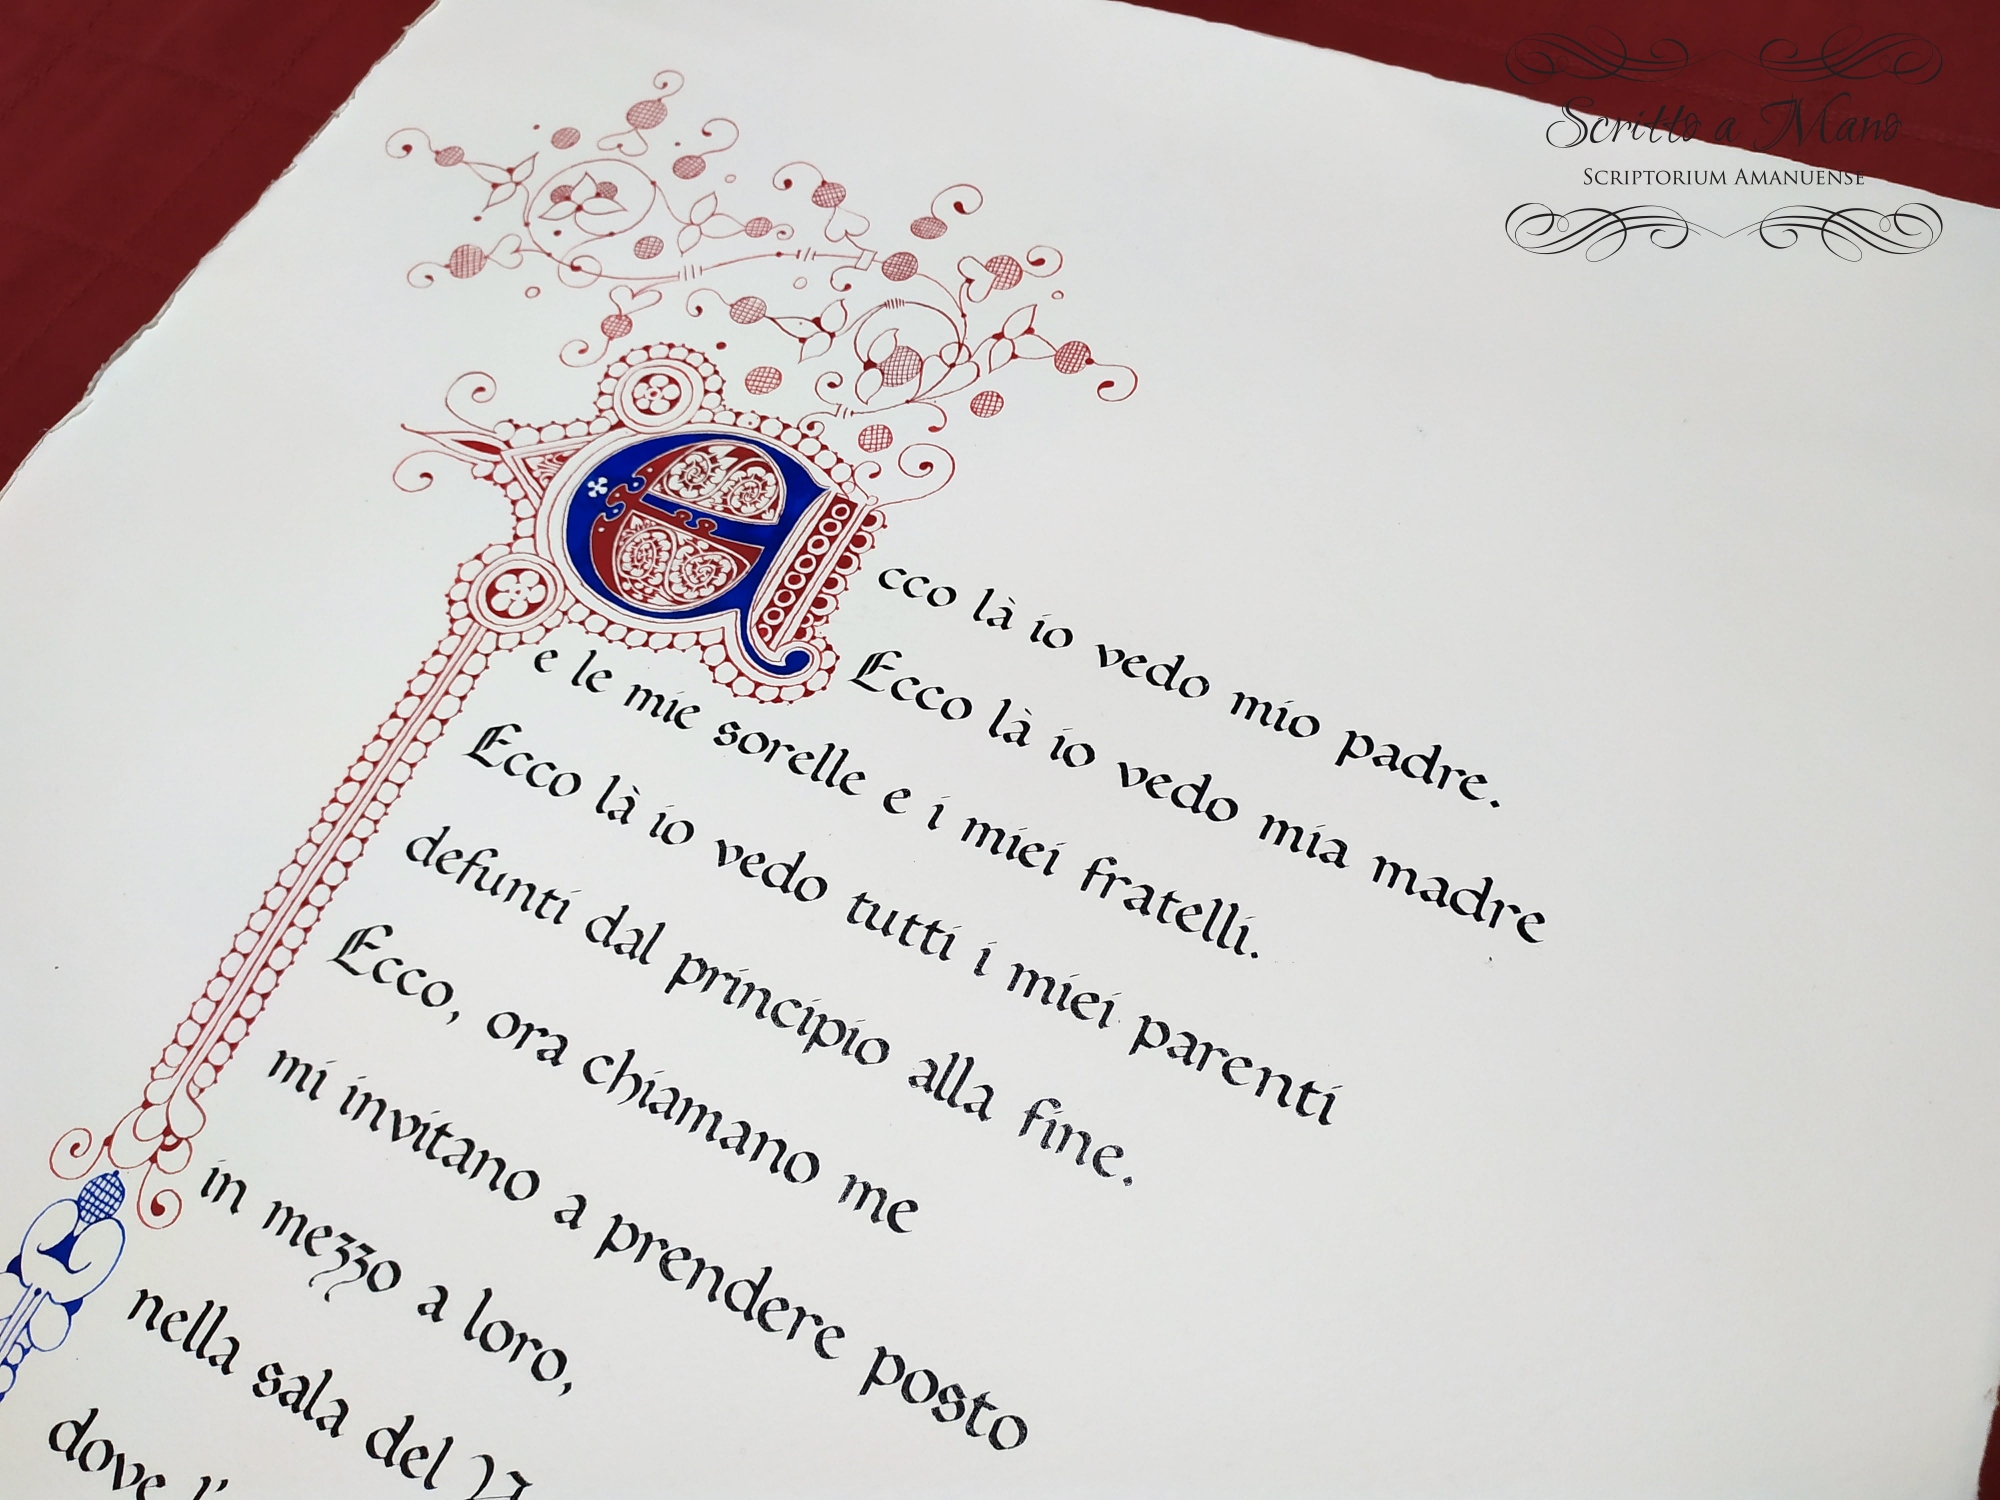 Scritto a Mano
SCRIPTORIUM AMANUENSE
Ecco là io vedo mio padre.
Ecco là io vedo mia madre
e le mie sorelle e i miei fratelli.
Ecco là io vedo tutti i miei parenti
defunti dal principio alla fine.
Ecco, ora chiamano me
mi invitano a prendere posto
in mezzo a loro,
nella sala del
dove